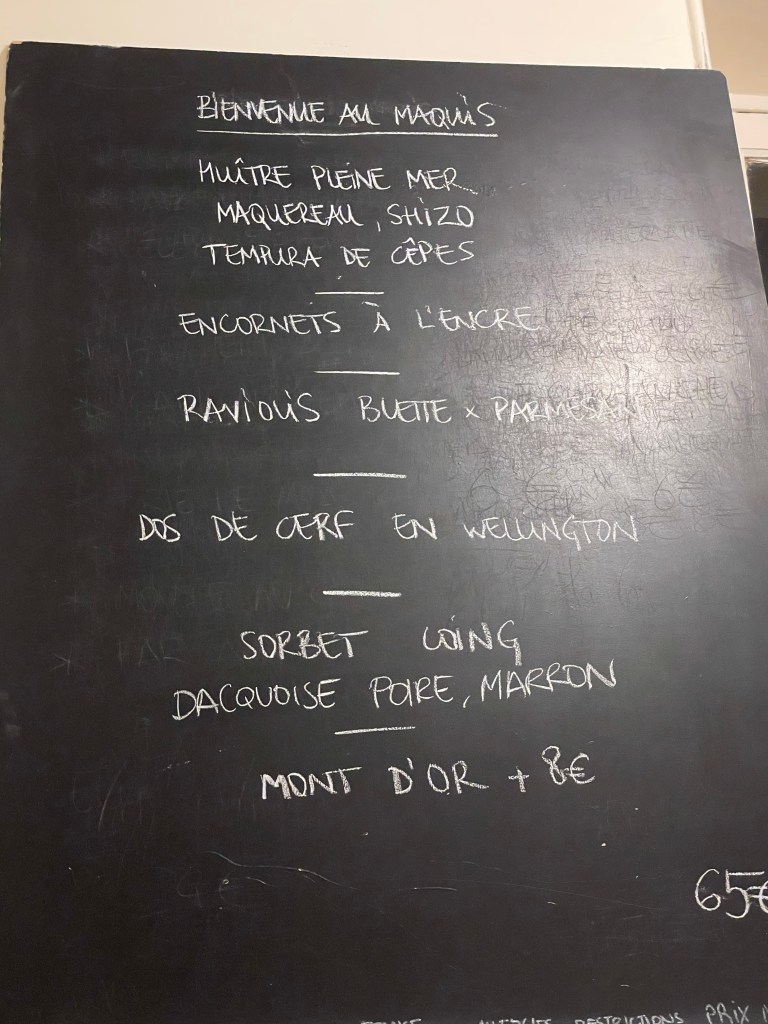 BIENVENUE AU MAQUIS
HUÎTRE PLEINE MER
MAQUEREAU, SHIZO
TEMPURA DE CÊPES
ENCORNETS À L'ENCRE
RAVIOLIS BLETTE x PARMESAN
DOS DE CERF EN WELLINGTON
SORBET COING
DACQUOISE POIRE, MARRON
MONT D'OR + 8€
65€
RESTRICTIONS PRIX